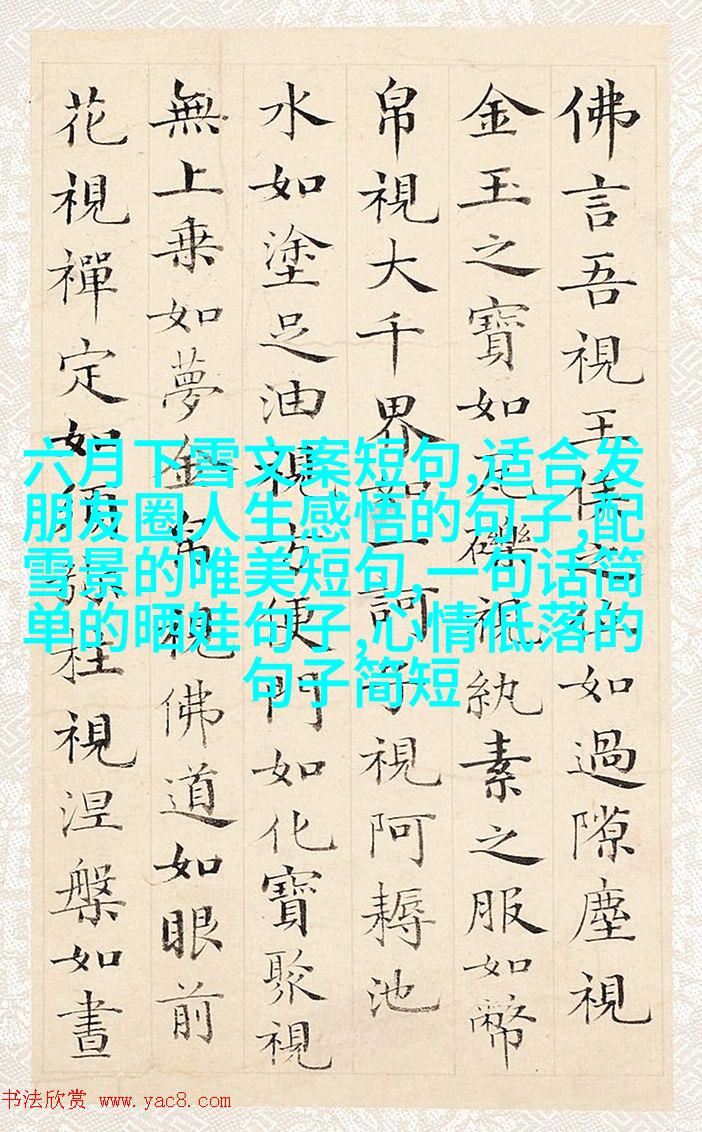 佛言吾視王侯之位如過隙塵視
金玉之寶如瓦礫視紈素之服如幣
帛視大千界如一訶子視阿耨池
水如塗足油視方便門如化寶聚視
無上乗如夢金帛視佛道如眼前
花視禪定如須彌柱視涅槃如晝
六月下雪文案短句,适合发
朋友圈人生感悟的句子,配
雪景的唯美短句,一句话简
单的晒娃句子,心情低落的
句子简短
书法欣赏 www.yac8.com